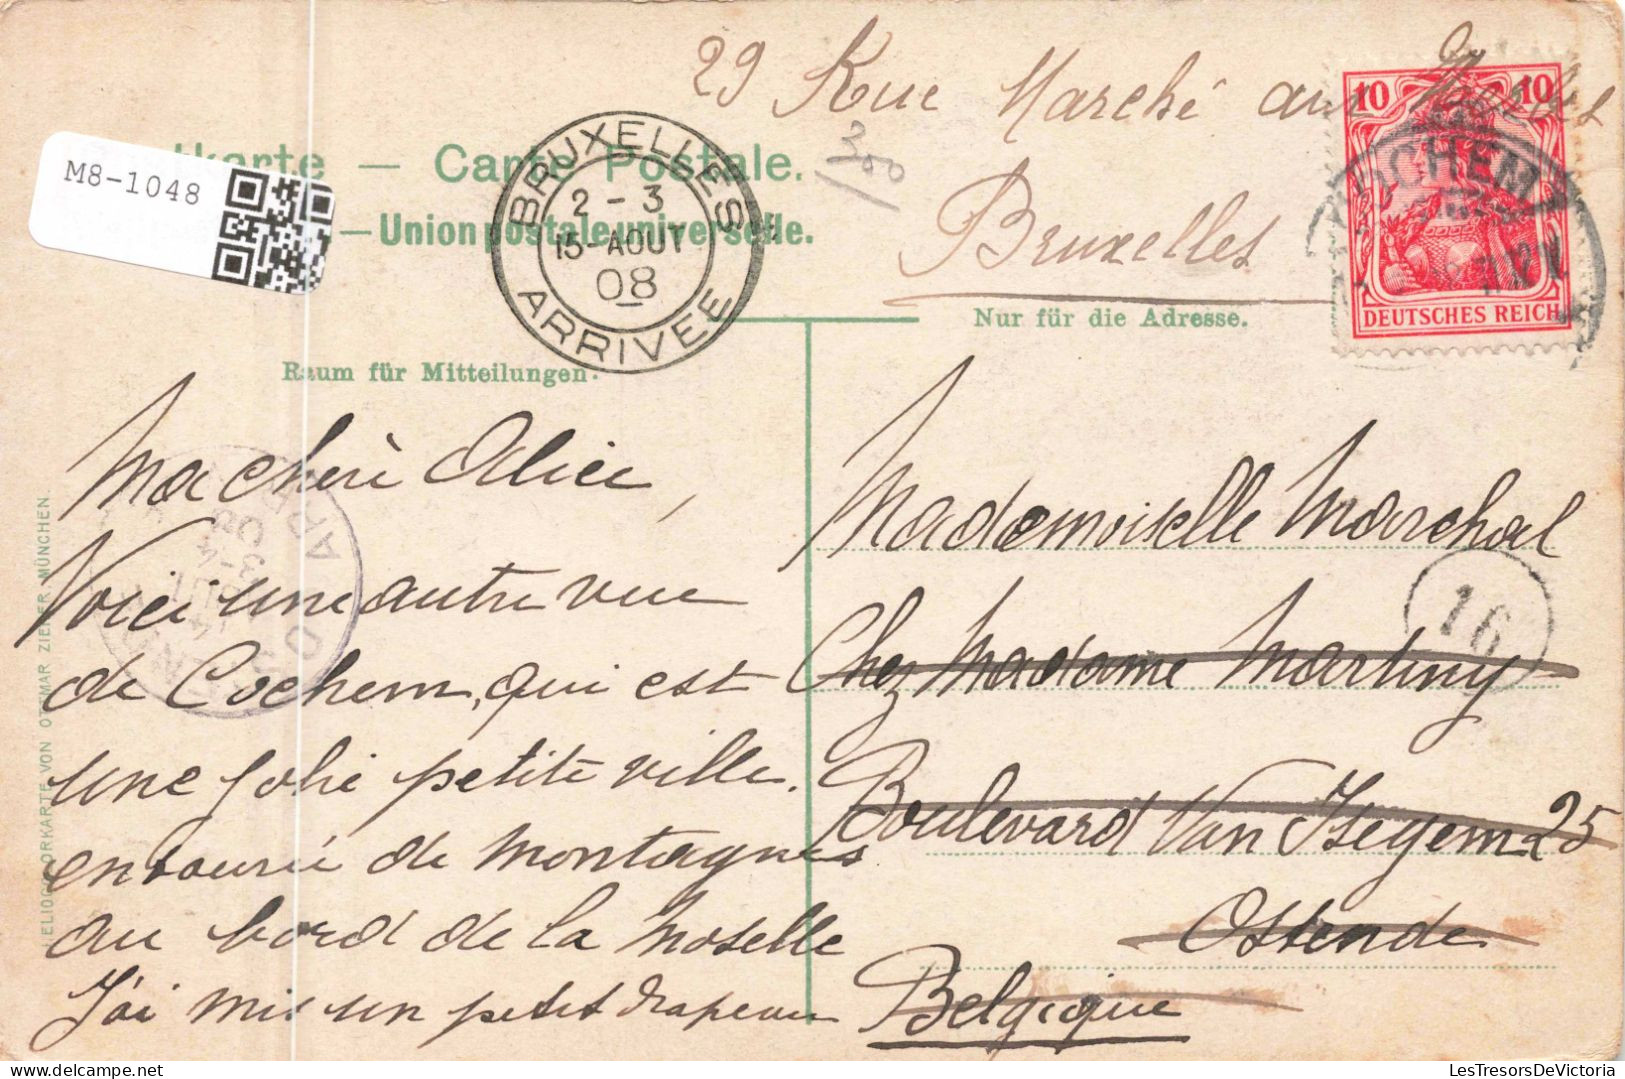 29 Rue Marché aux
Bruxelles
M8-1048
tkarte — Carte Postale.
300
— Union postale universelle.
BRUXELLES
2 - 3
15-AOUT
08
ARRIVEE
COCHEM
10 10
DEUTSCHES REICH
Nur für die Adresse.
Raum für Mitteilungen.
Ma chèrè Alice,
Voici une autre vue
de Cochem, qui est
une jolie petite ville
entourée de montagnes
au bord de la Moselle
J'ai mis un petit drapeau
Mademoiselle Marchal
16
Chez Madame Martiny
Boulevard Van Iseghem 25
Ostende
Belgique
HELIOCOLORKARTE VON OTTMAR ZIEHER, MÜNCHEN.
LesTresorsDeVictoria
delcampe.net